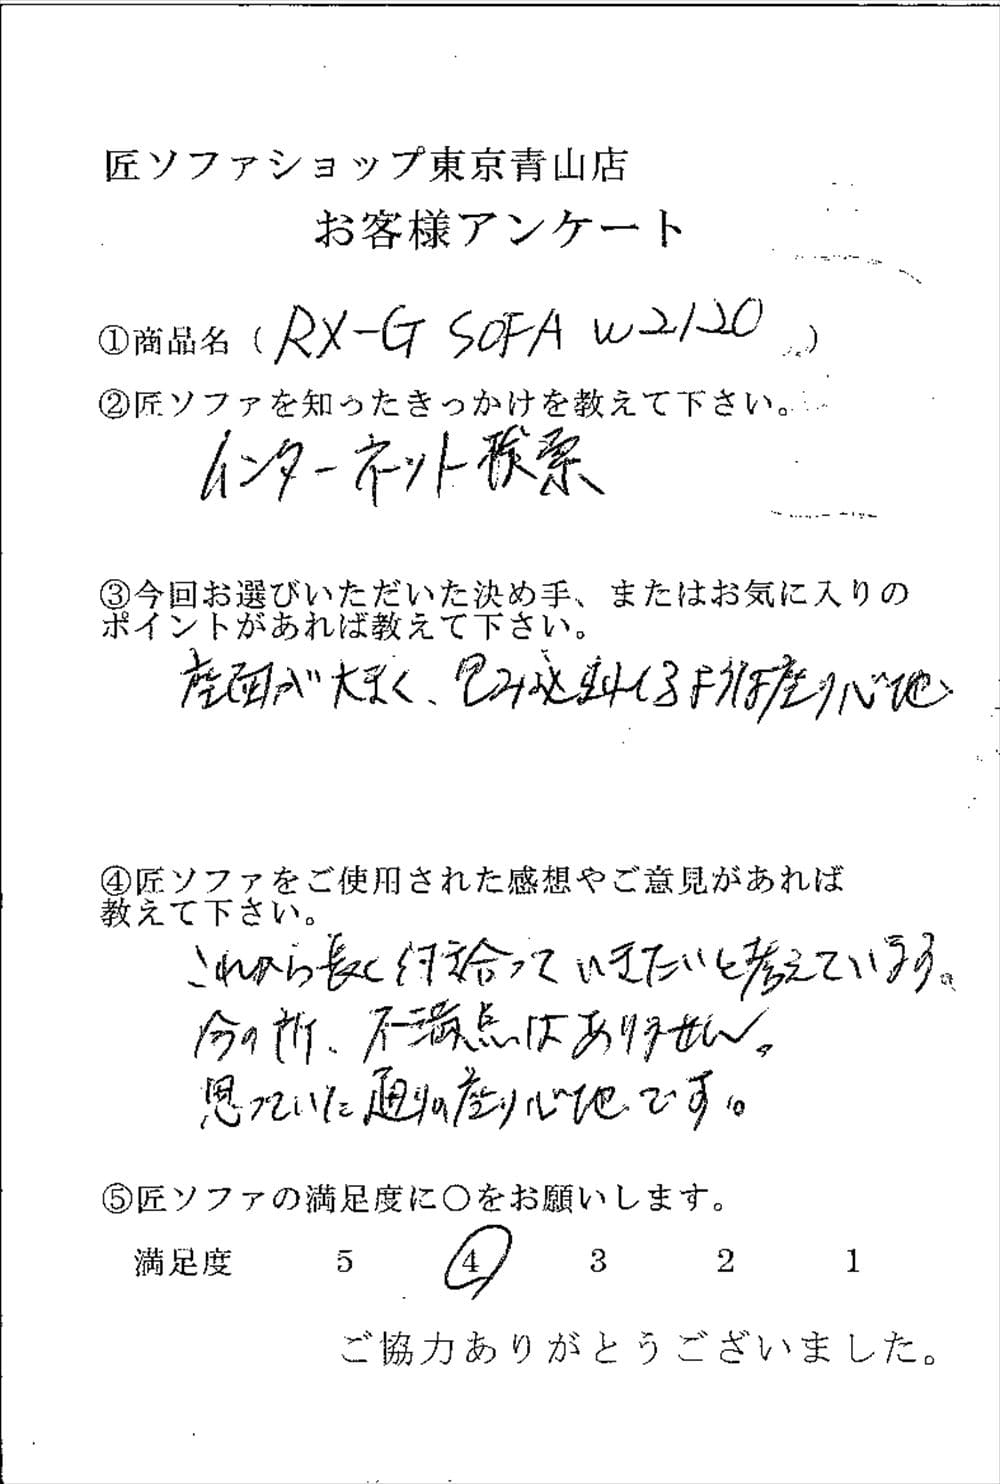 匠ソファショップ東京青山店
お客様アンケート
①商品名（RX-G SOFA W2120）
②匠ソファを知ったきっかけを教えて下さい。
インターネット検索
③今回お選びいただいた決め手、またはお気に入りの
ポイントがあれば教えて下さい。
座面が大きく、包み込まれるような座り心地
④匠ソファをご使用された感想やご意見があれば
教えて下さい。
これから長く付き合っていきたいと考えています。
今の所、不満点はありません。
思っていた通りの座り心地です。
⑤匠ソファの満足度に○をお願いします。
満足度 5 4 3 2 1
ご協力ありがとうございました。